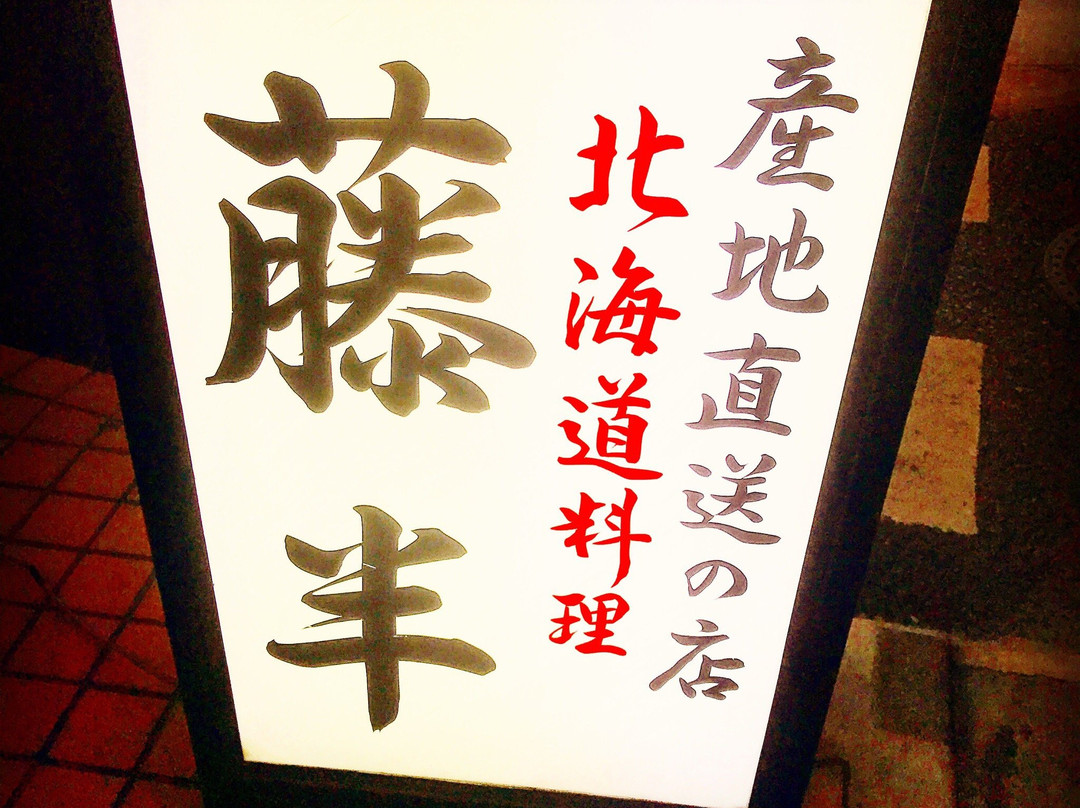 産地直送の店
北海道料理
藤半